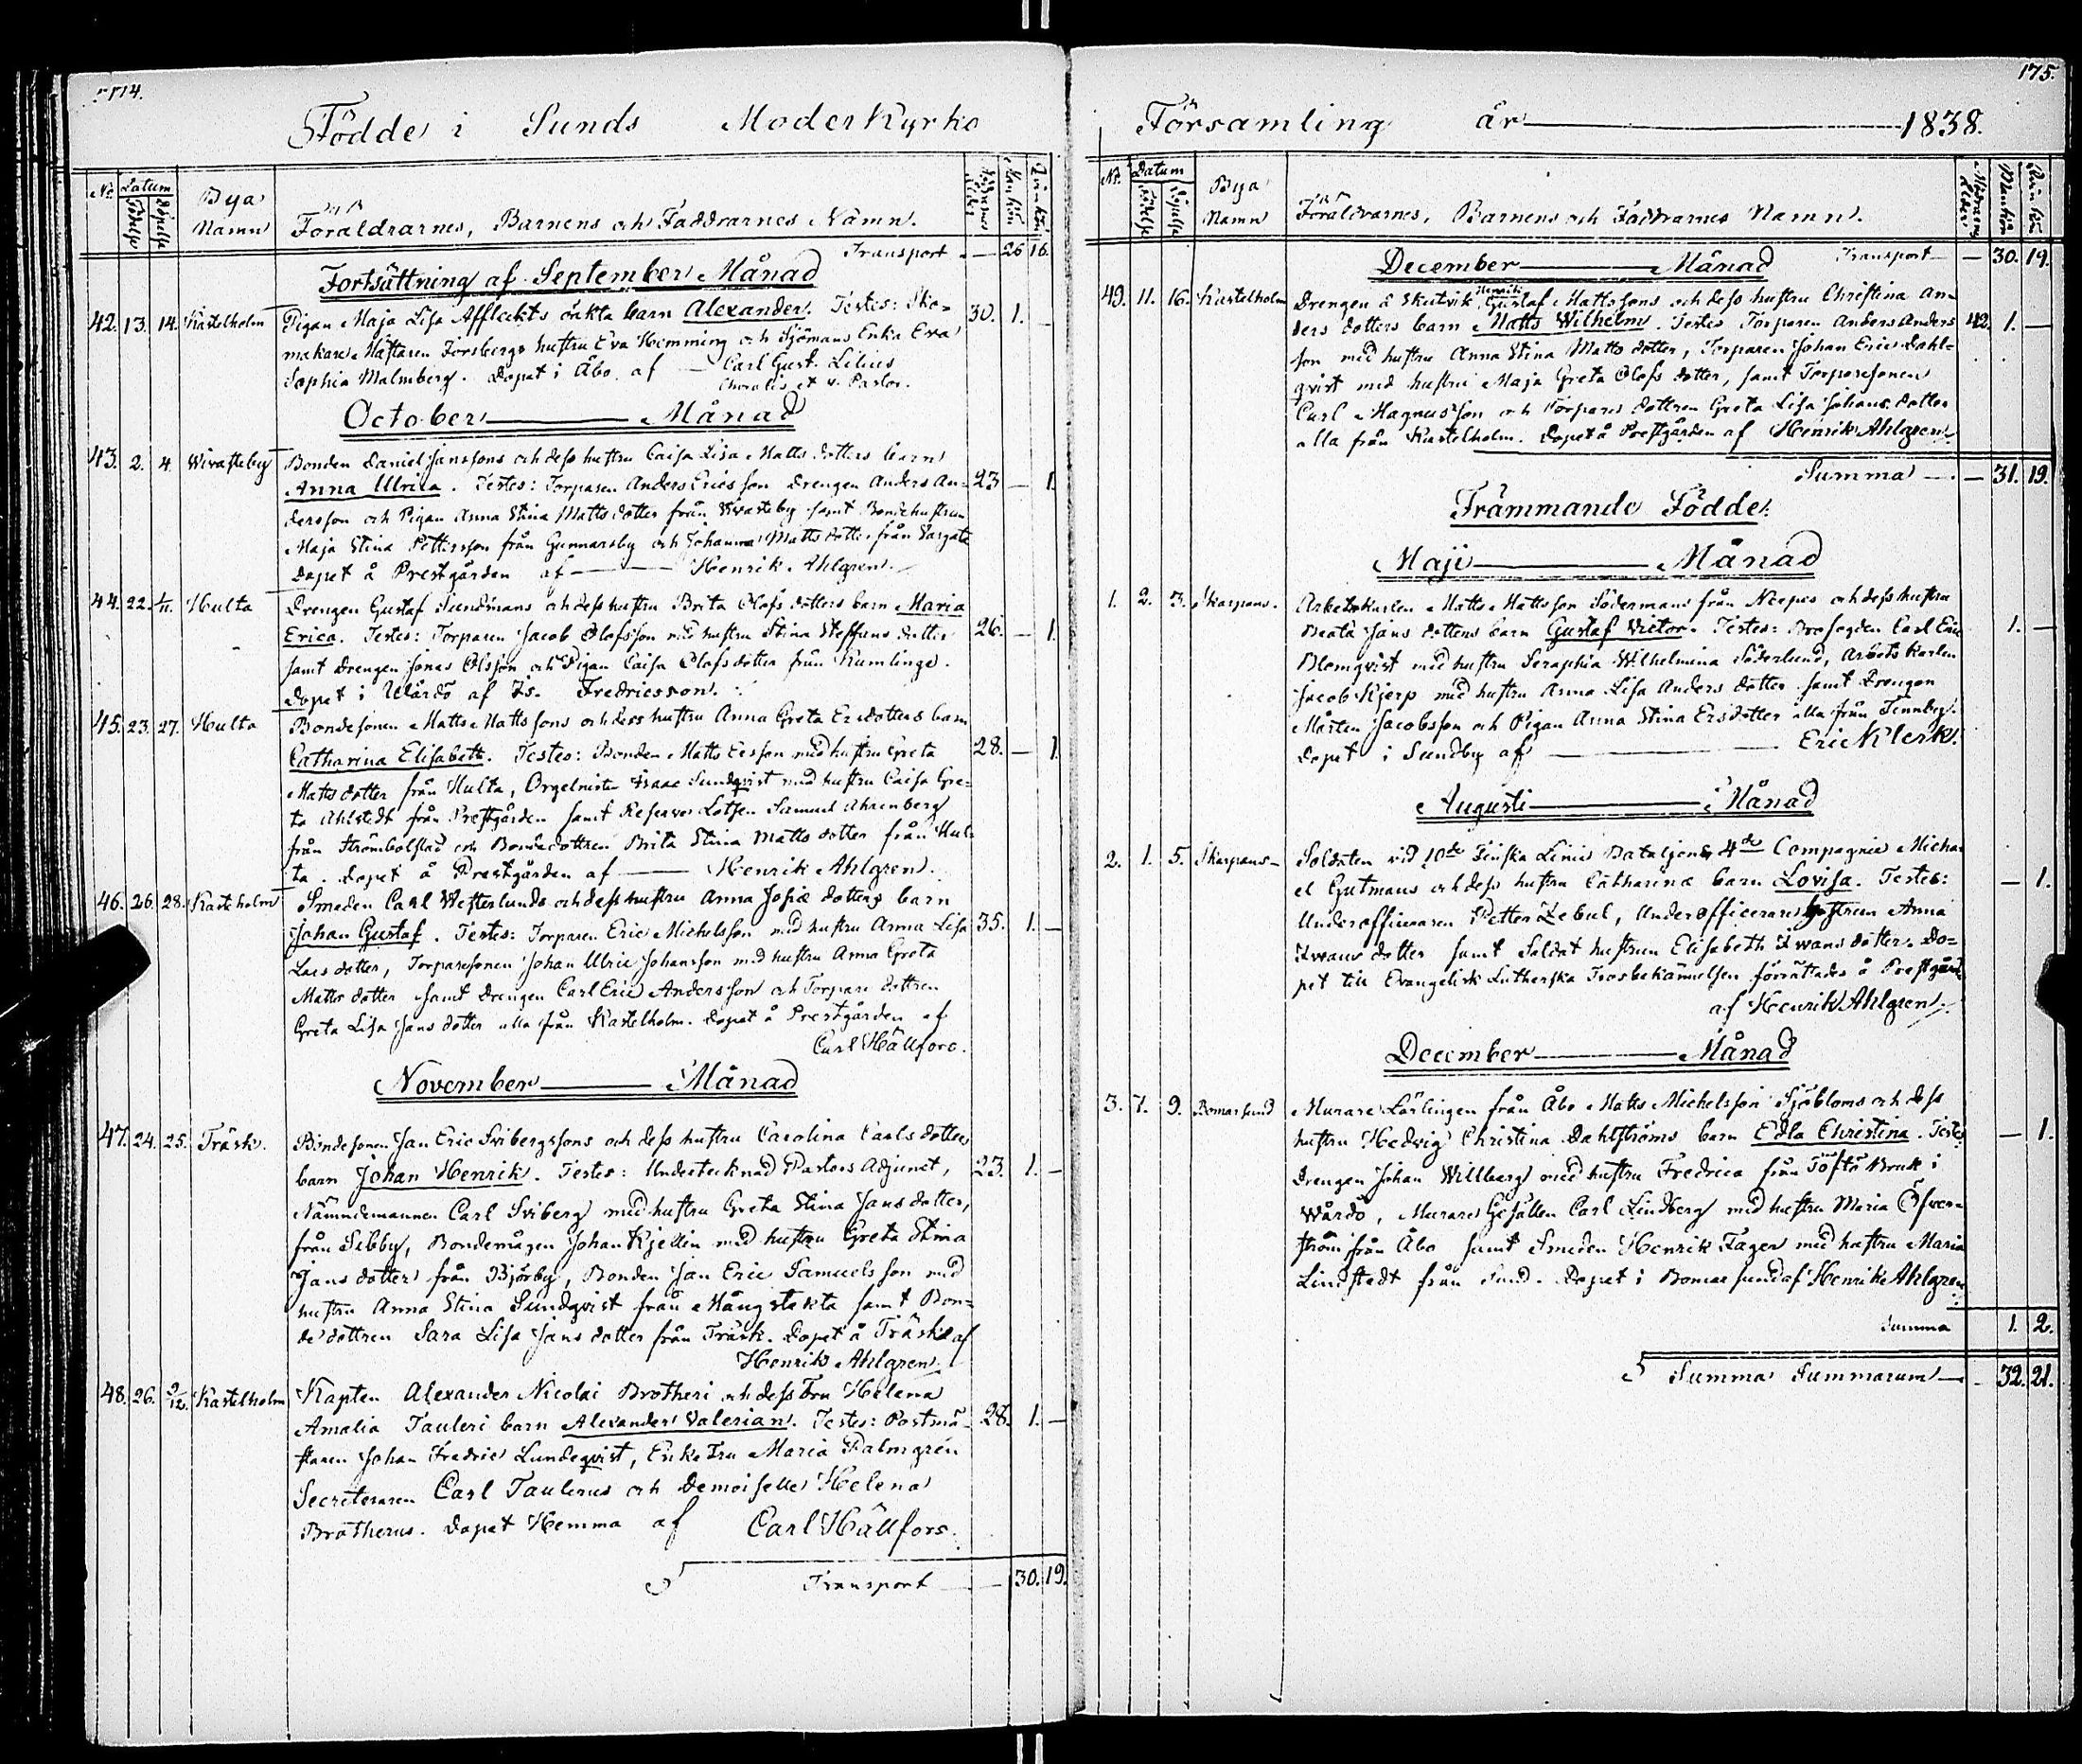 174.
Födde i Sunds Moderkyrko
No Datum Bya Namn Föräldrarnes, Barnens och Faddrarnes Namn.
Födelse Döpelse
Transport — 26 16.
Fortsättning af September Månad
42. 13. 14. Kastelholm Pigan Maja Lisa Afflekts oäkta barn Alexander. Testes: Sko- 30. 1. —
makare Häftaren Forsbergs hustru Eva Hemming och Sjömans Enka Eva
Sophia Malmberg. Döpet i Åbo af — Carl Gust. Lilius
Choralis et v. Pastor.
October — Månad
43. 2. 4. Wivasteby Bonden Daniel Janssons och dess hustru Caisa Lisa Matts dotters barn
Anna Ulrica. Testes: Torparen Anders Ericsson Drengen Anders An- 23 — 1.
dersson och Pigan Anna Stina Matts dotter från Wivasteby samt Bondehustrun
Maja Stina Pettersson från Gunnarsby och Johanna Matts dotter från Vargata
Döpet å Prestgården af — Henrik Ahlgren.
44. 22. 1/11. Hulta Drengen Gustaf Sundmans och dess hustru Brita Olofs dotters barn Maria
Erica. Testes: Torparen Jacob Olofsson med hustru Stina Steffans dotter 26. — 1.
samt Drengen Jonas Olsson och Pigan Caisa Olofsdotter från Kumlinge.
Döpet i Wårdö af Is. Fredricsson.
45. 23. 27. Hulta Bondesonen Matts Mattssons och dess hustru Anna Greta Ersdotters barn
Catharina Elisabeth. Testes: Bonden Matts Ersson med hustru Greta 28. — 1.
Matts dotter från Hulta, Orgelnisten Isaac Sundqvist med hustru Caisa Gre-
ta Ahlstedt från Prestgården samt Reserve Lotsen Samuel Ahrenberg
från Strömbolstad och Bondedottren Brita Stina Matts dotter från Hul-
ta. Döpet å Prestgården af — Henrik Ahlgren.
46. 26. 28. Kastelholm Smeden Carl Westerlunds och dess hustru Anna Josra dotters barn
Johan Gustaf. Testes: Torparen Eric Michelsson med hustru Anna Lisa 35. 1. —
Lars dotter, Torparesonen Johan Ulric Johansson med hustru Anna Greta
Matts dotter samt Drengen Carl Eric Andersson och Torpare dottren
Greta Lisa Jans dotter alla från Kastelholm. Döpet å Prestgården af
Carl Hällfors.
November — Månad
47. 24. 25. Träsk. Bondesonen Jan Eric Svibergssons och dess hustru Carolina Carls dotters
barn Johan Henrik. Testes: Undertecknad Pastors Adjunct, 23. 1. —
Nämndemannen Carl Sviberg med hustru Greta Stina Jans dotter,
från Sibby, Bondemågen Johan Kjellin med hustru Greta Stina
Jans dotter från Björby, Bonden Jan Eric Samuelsson med
hustru Anna Stina Sundqvist från Mångstekta samt Bon-
de dottren Sara Lisa Jans dotter från Träsk. Döpet å Träsk af
Henrik Ahlgren.
48. 26. 2/12. Kastelholm Kapten Alexander Nicolai Brotheri och dess Fru Helena
Amalia Tauleri barn Alexander Valerian. Testes: Postmä- 28. 1. —
staren Johan Fredric Lundeqvist, Enke Fru Maria Palmgren
Secreteraren Carl Taulerus och Demoiselle Helena
Brotherus. Döpet Hemma af Carl Hällfors.
Transport — — 30. 19.
175.
Församling år — 1838.
No. Datum Bya Namn Föräldrarnes, Barnens och Faddrarnes Namn.
Födelse Döpelse Modrens Ålder. Mankön Qvinkön
December — Månad Transport — — 30. 19.
49. 11. 16. Kastelholm Drengen å Skutvik Henrik Gustaf Mattssons och dess hustru Christina An-
ders dotters barn Matts Wilhelm. Testes Torparen Anders Anders- 42. 1. —
son med hustru Anna Stina Matts dotter, Torparen Johan Eric Dahl-
qvist med hustru Maja Greta Olofs dotter, samt Torparesonen
Carl Magnusson och Torpare dottren Greta Lisa Johans dotter
alla från Kastelholm. Döpet å Prestgården af Henrik Ahlgren.
Summa — — 31. 19.
Främmande Födde.
Maji — Månad
1. 2. 3. Skarpans. Arbetskarlen Matts Mattsson Södermans från Neepes och dess hustru
Beata Jans dotters barn Gustaf Victor. Testes: Brofogden Carl Eric 1. —
Blomqvist med hustru Seraphia Wilhelmina Söderlund, Arbetskarlen
Jacob Kjerp med hustru Anna Lisa Anders dotter samt Drengen
Mårten Jacobsson och Pigan Anna Stina Ersdotter alla från Finnby.
Döpet i Sundby af — Eric Klerk.
Augusti — Månad
2. 1. 5. Skarpans — Soldaten vid 10de Finska Linie Bataljons 4de Compagnie Micha-
el Gutmans och dess hustru Catharinæ barn Lovisa. Testes: — 1.
Underofficeraren Petter Zebul, Underofficerare hustrun Anna
Iwans dotter samt Soldat hustrun Elisabeth Iwans dotter. Dö-
pet till Evangelisk Lutherska Trosbekännelsen förrättades å Prestgård.
af Henrik Ahlgren.
December — Månad
3. 7. 9. Bomarsund Murare Lärlingen från Åbo Matts Michelsson Sjöbloms och dess
hustru Hedvig Christina Dahlströms barn Edla Christina. Testes — 1.
Drengen Johan Willberg med hustru Fredrica från Töftö Bruk i
Wårdö, Murare Gesällen Carl Lindberg med hustru Maria Öfver-
ström från Åbo samt Smeden Henrik Fager med hustru Maria
Lindstedt från Sund. Döpet i Bomarsund af Henrik Ahlgren
Summa 1. 2.
Summa Summarum — 32. 21.